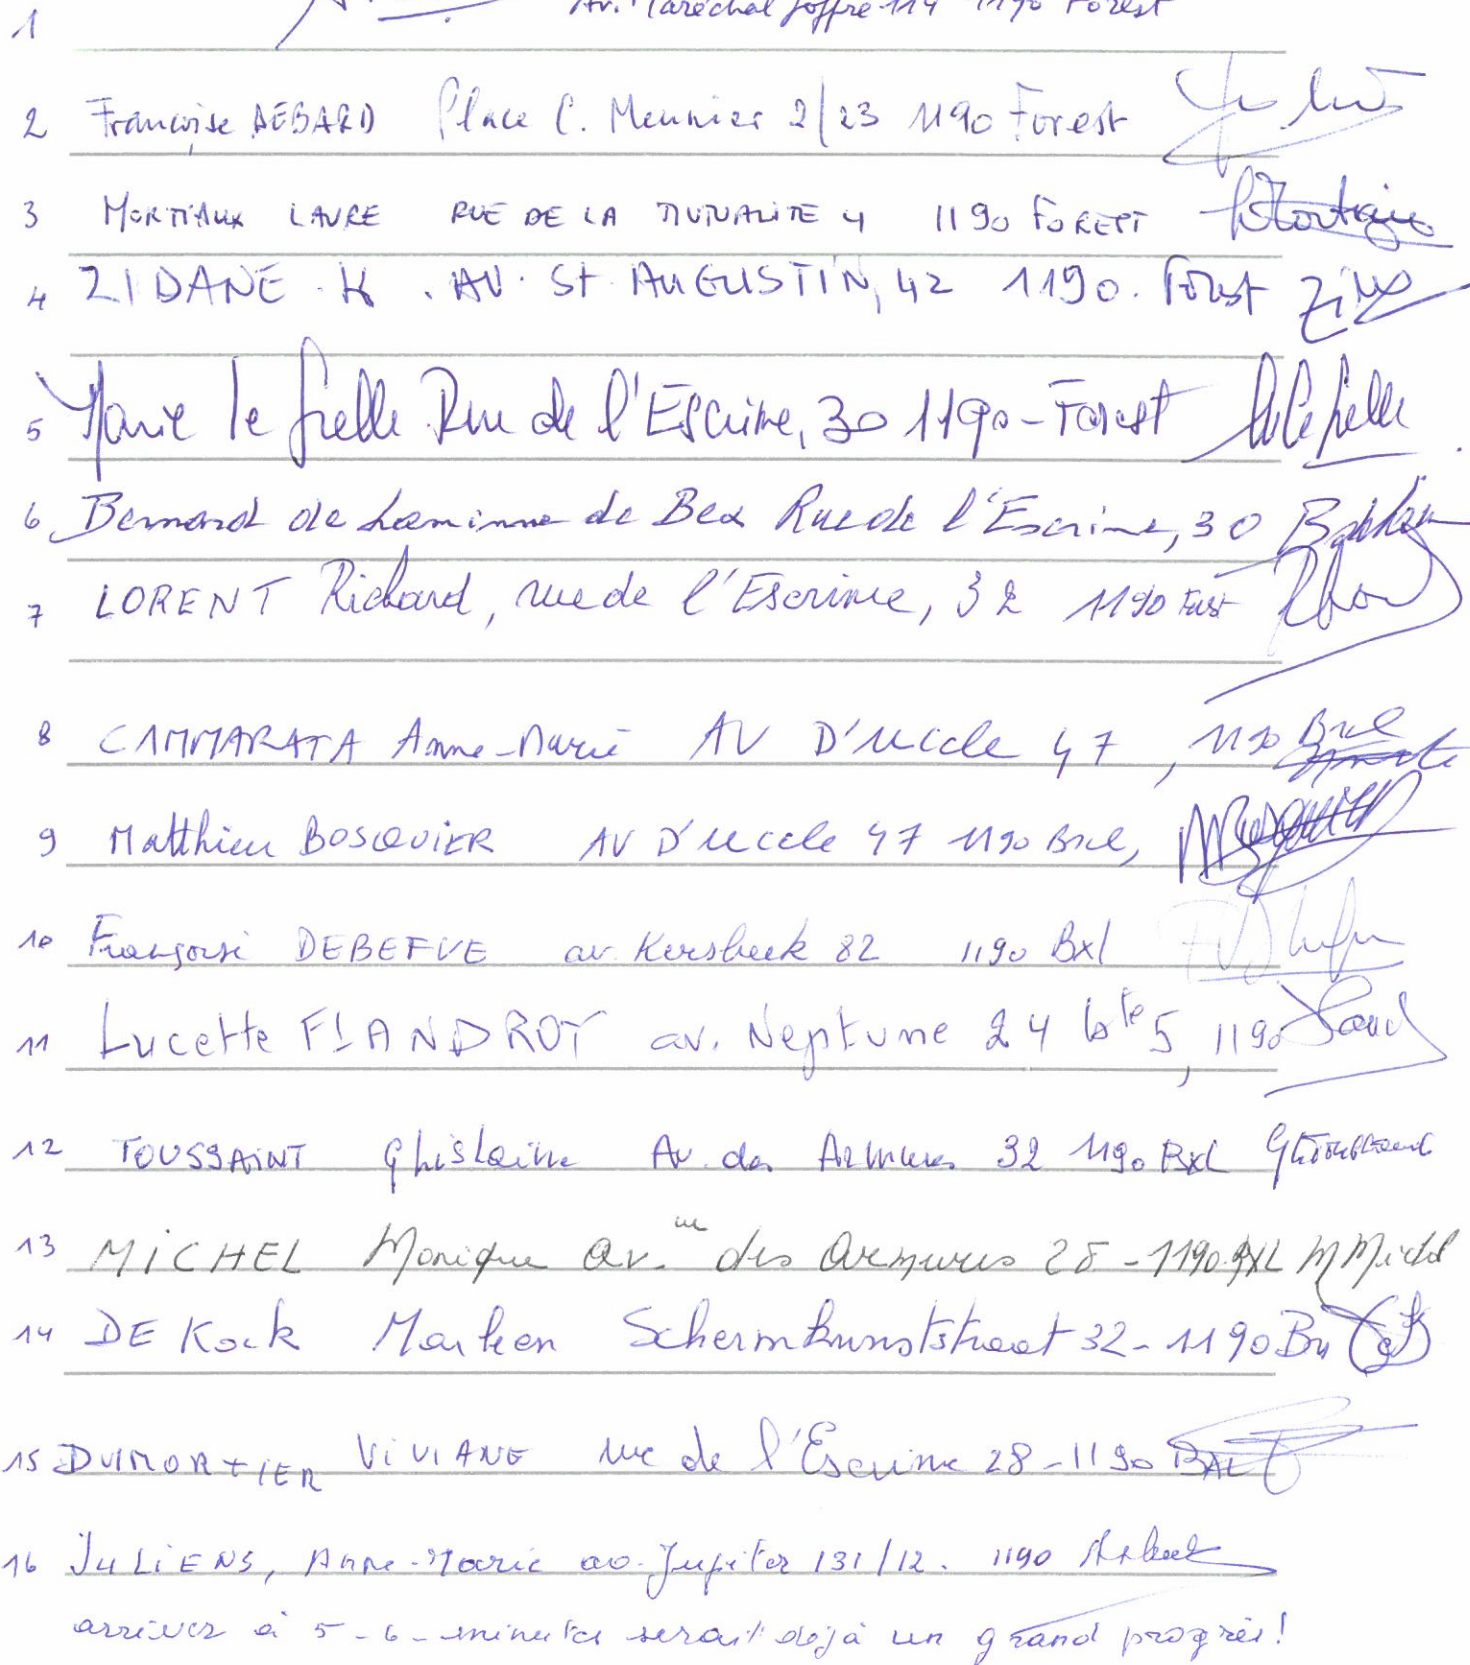 1 Av. Maréchal Joffre 114 1190 Forest
2 Françoise DEBARD Place C. Meunier 2/23 1190 Forest
3 MORTIAUX LAURE RUE DE LA MUTUALITE 4 1190 FOREST
4 ZIDANE . K . AV. St. AUGUSTIN, 42 1190. Forest
5 Marie le Rue de l'Escrime, 30 1190 - Forest
6 Bernard de Laminne de Bex Rue de l'Escrime, 30
7 LORENT Richard, rue de l'Escrime, 32 1190 Forest
8 CAMMARATA Anne-Marie AV D'Uccle 47, 1190 Bxl
9 Matthieu BOSQUIER AV D'Uccle 47 1190 Bxl,
10 Françoise DEBEFVE av. Kersbeek 82 1190 Bxl
11 Lucette FLANDROY av. Neptune 24 bte 5, 1190
12 TOUSSAINT Ghislaine Av. des Armures 32 1190 BXL
13 MICHEL Monique av. des Armures 28 - 1190 BXL M Michel
14 DE Kock Marleen Schermkunststraat 32 - 1190 Bru
15 DUMORTIER VIVIANE rue de l'Escrime 28 - 1190 BXL
16 JULIENS, Anne-Marie av. Jupiter 131/12. 1190
arriver à 5 - 6 - minutes serait déjà un grand progrès!